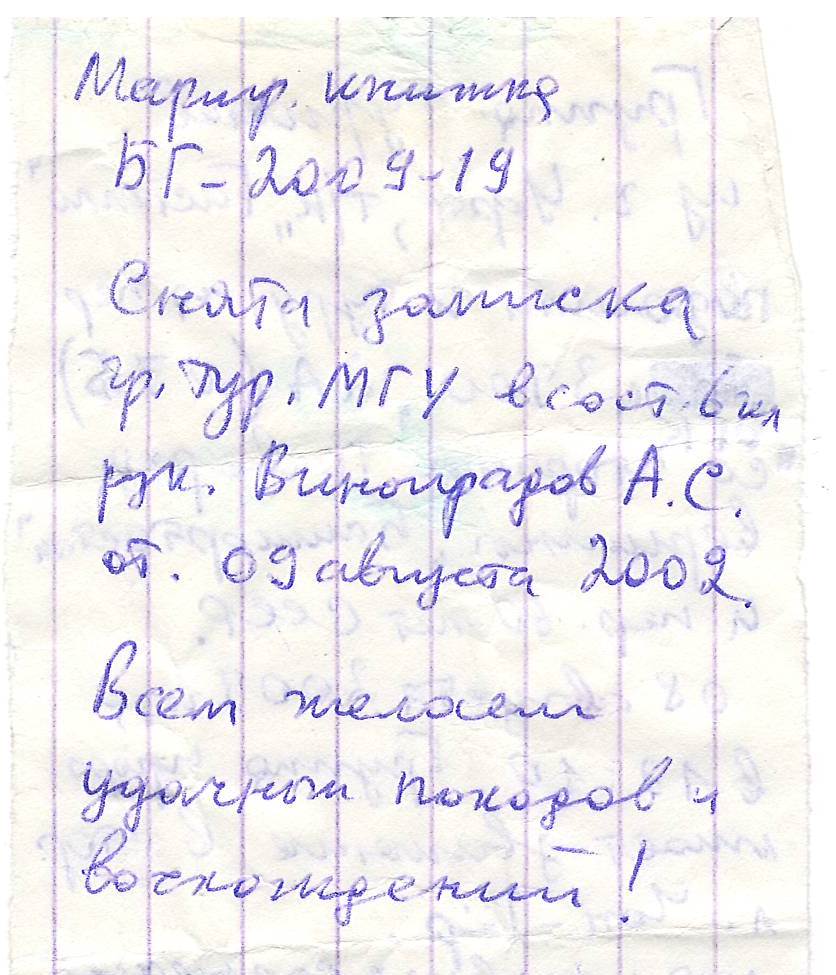 Маршр. книжка
БГ-2009-19
Снята записка
гр. тур. МГУ в сост. 6 чл
рук. Виноградов А.С.
от. 09 августа 2002.
Всем желаем
удачных походов и
восхождений!